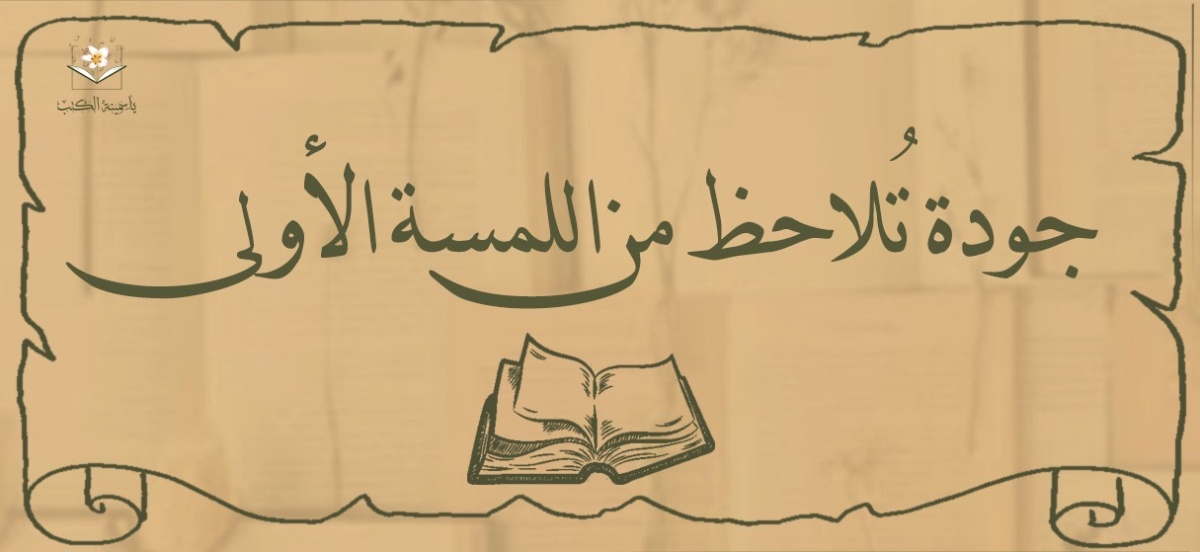 ياسمينة الكتب
جودة تُلاحظ من اللمسة الأولى